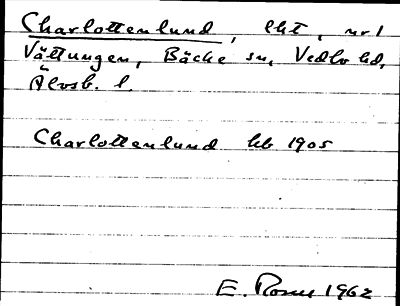 Charlottenlund, lht, nr 1
Vättungen, Bäcke sn, Vedbo hd,
Älvsb. l.
Charlottenlund kb 1905
E. Rosen 1962